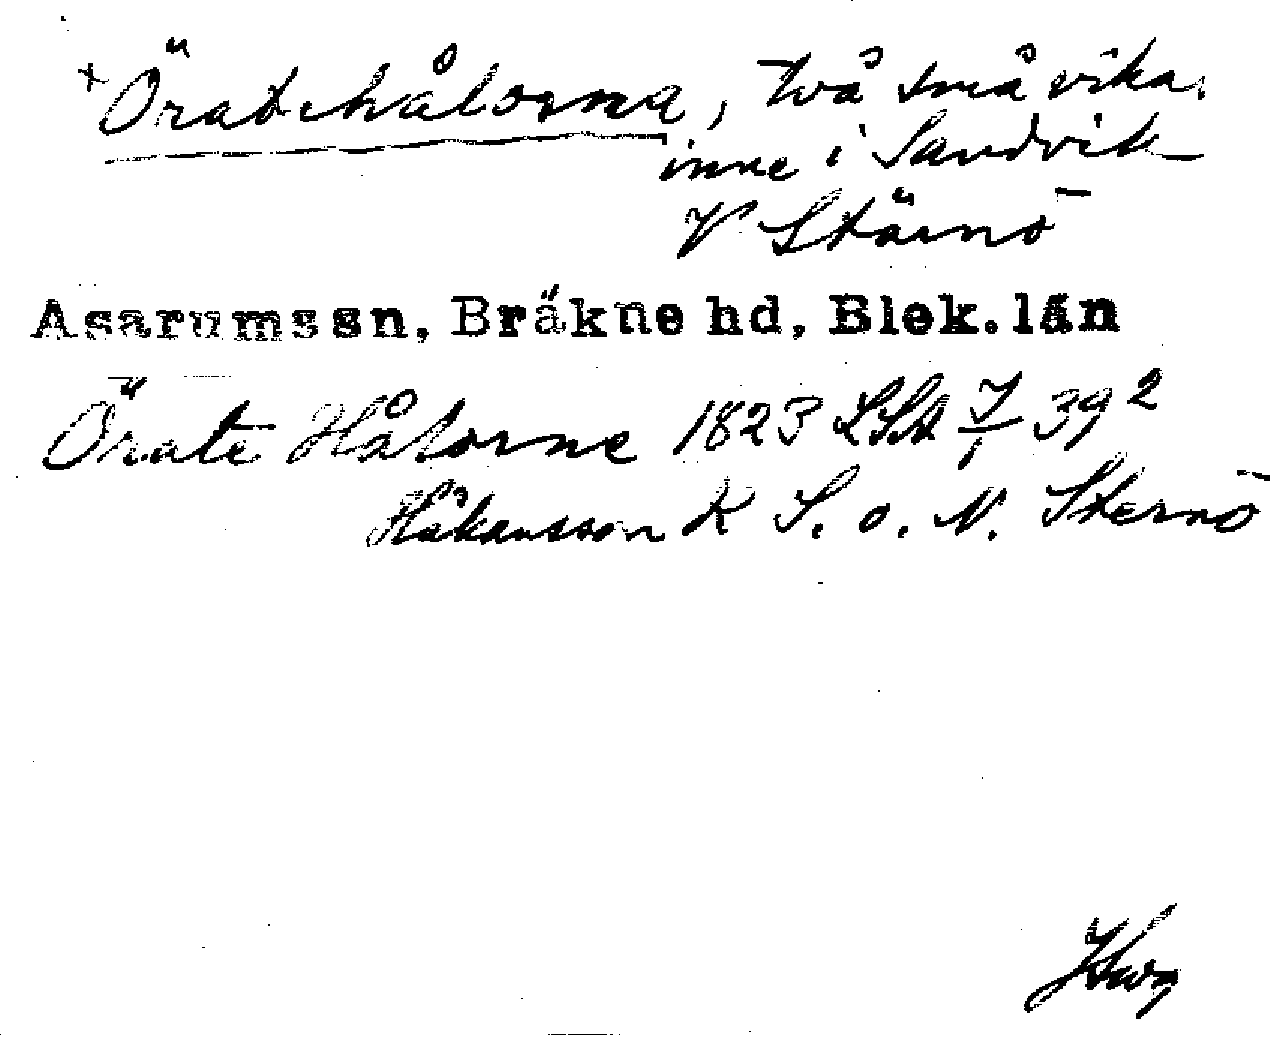 + Örat-hålorna, två små vikar
inne i Sandvik
V Stärnö
Asarumssn, Bräkne hd, Blek. län
Örate Hålorne 1823 LSA 39²
Håkansson K S. o. N. Sternö